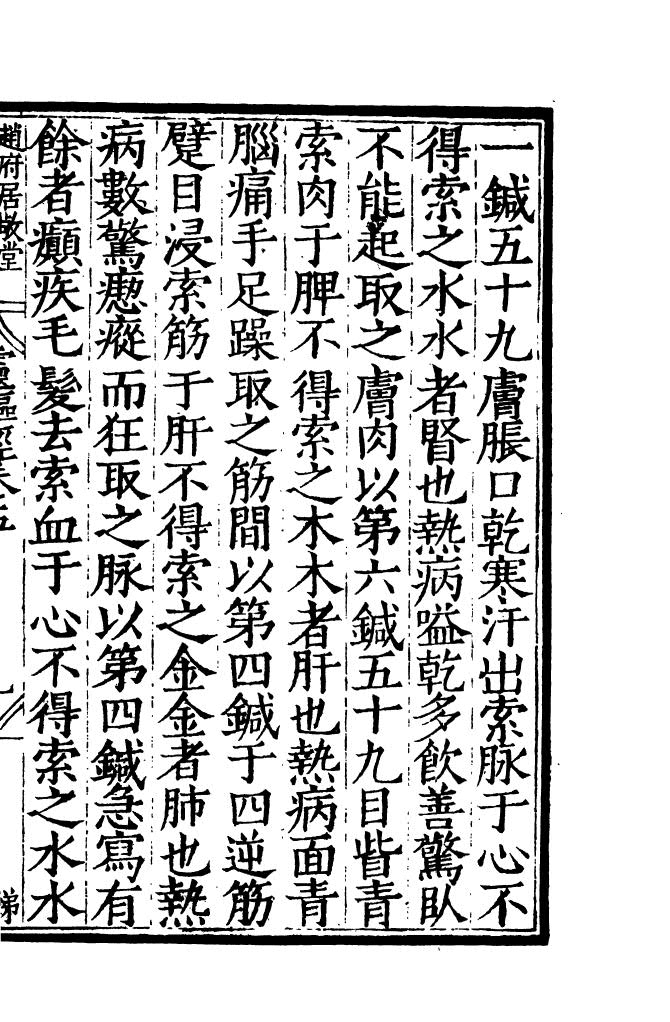 一鍼五十九膚脹口乾寒汗出索脉于心不
得索之水水者腎也熱病嗌乾多飲善驚臥
不能起取之膚肉以第六鍼五十九目眥青
索肉于脾不得索之木木者肝也熱病面青
腦痛手足躁取之筋間以第四鍼于四逆筋
躄目浸索筋于肝不得索之金金者肺也熱
病數驚瘛瘲而狂取之脉以第四鍼急寫有
餘者癲疾毛髮去索血于心不得索之水水
趙府居敬堂